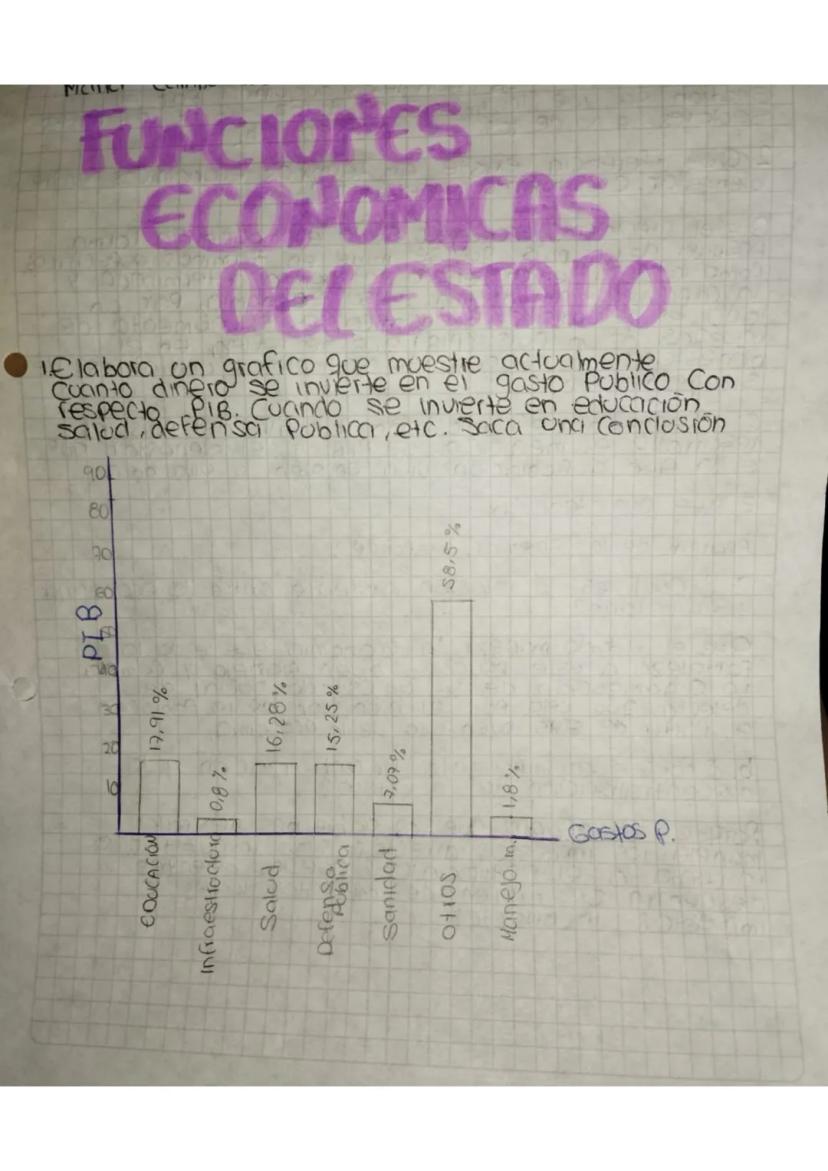 FUNCIONES
ECONOMICAS
DEL ESTADO
1. Elabora un grafico que muestre actualmente
cuanto dinero se invierte en el gasto Publico Con
respecto PIB. Cuando se invierte en educación,
salud, defensa Publica, etc. Saca una Conclusión
90
80
70
60
40
30
20
10
PIB
17,91 %
0,8 %
16,28 %
15,25 %
7,07 %
58,5 %
1,8 %
Gastos P.
EDUCACIÓN
Infraestructura
Salud
Defensa
Pública
Sanidad
Otros
Manejo m.